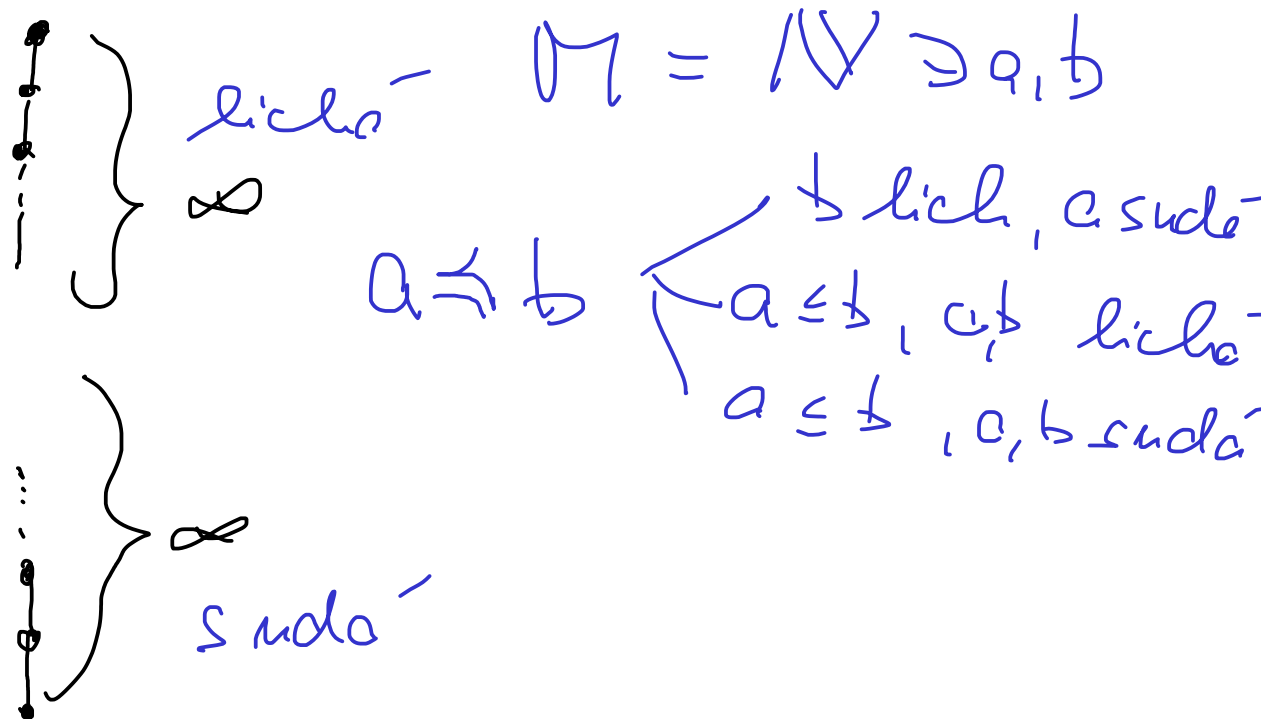 M = ℕ ∋ a, b
lichá
∞
a ≼ b
b lich, a sudé
a ≤ b, a, b lichá
a ≤ b, a, b sudá
∞
sudá